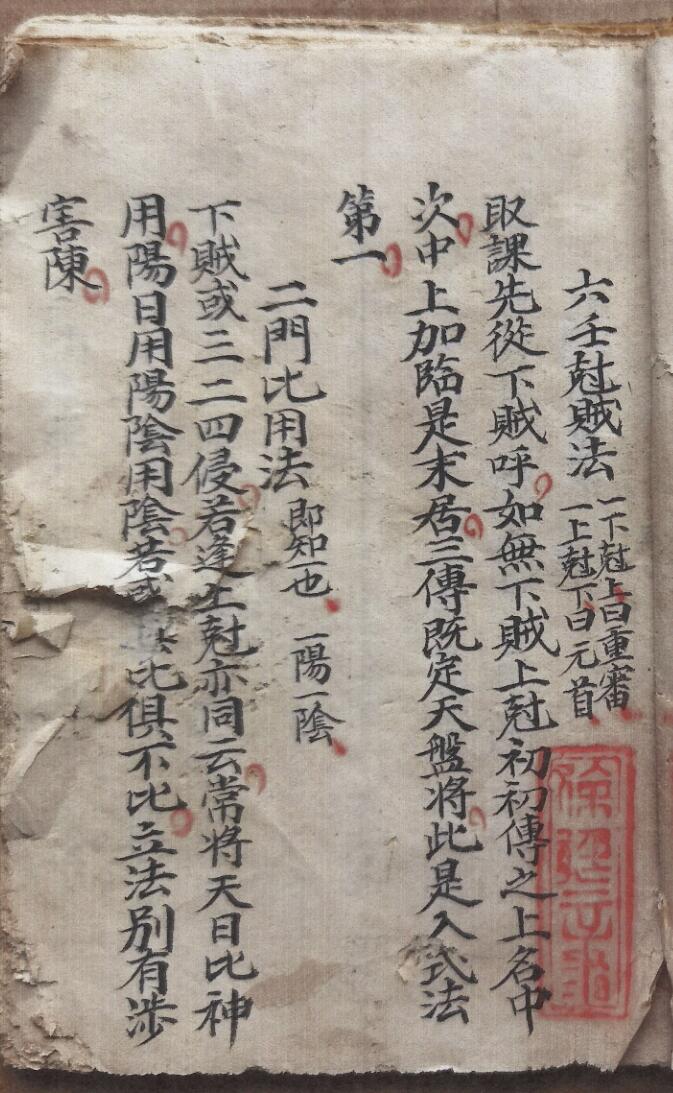 六壬尅賊法 一下尅上曰重審
一上尅下曰元首
取課先從下賊呼如無下賊上尅初初傳之上名中
次中上加臨是末居三傳既定天盤將此是入式法
第一
二門比用法 即知一也 一陽一陰
下賊或三二四侵若逢上尅亦同云常將天日比神
用陽日用陽陰用陰若或 比俱不比立法別有涉
害陳